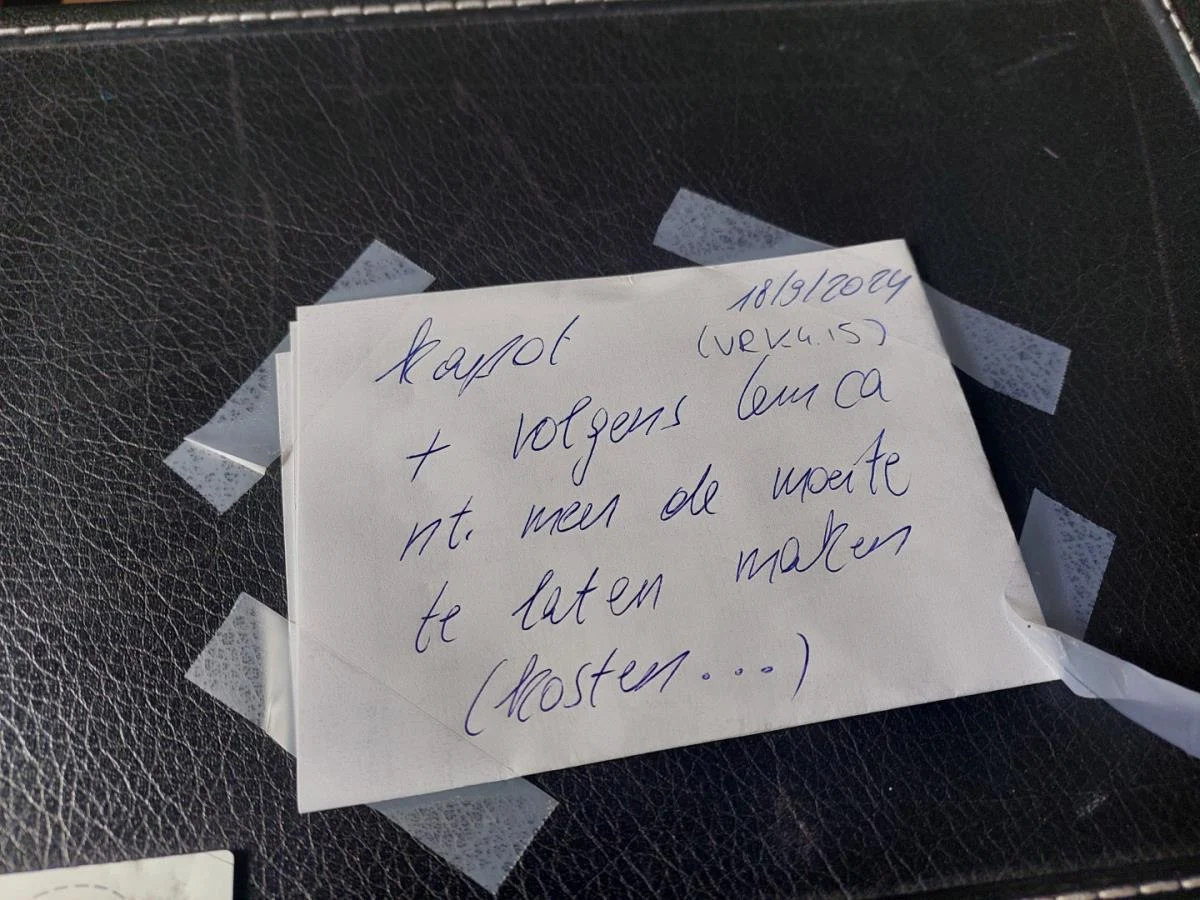 18/9/2024
kapot (VRK4.15)
+ volgens
nt. meer de moeite
te laten maken
(kosten...)